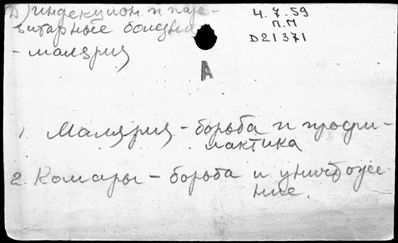 Д) инфекцион и пара-
витарные болезни
- малярия
4.7.59
П.М
D21371
A
1. Малярия - борьба и профи-
лактика
2. Комары - борьба и уничтоже
ние.